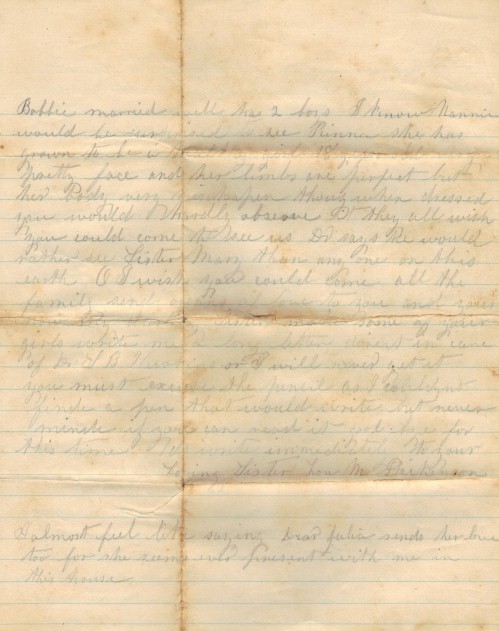 Bobbie married well has 2 boys I know Nannie
would be surprised to see Minna she has
grown to be a healthy girl 18 years old
pretty face and her limbs are perfect but
her Body very mishapen though when dressed
you would hardly observe it they all wish
you could come to see us Dr says he would
rather see Sister Mary than any one on this
earth O I wish you could come all the
family send of love to you and your
some of your
girls write me a long letter direct in care
of Dr or I will never get it
you must excuse the pencil as I couldnt
finde a pen that would write but never
minde if you can read it good bye for
this time Do write immediately to your
loving Sister Lou M
I almost feel like saying dear Julia sends her love
too for she seems ever present with me in
this house